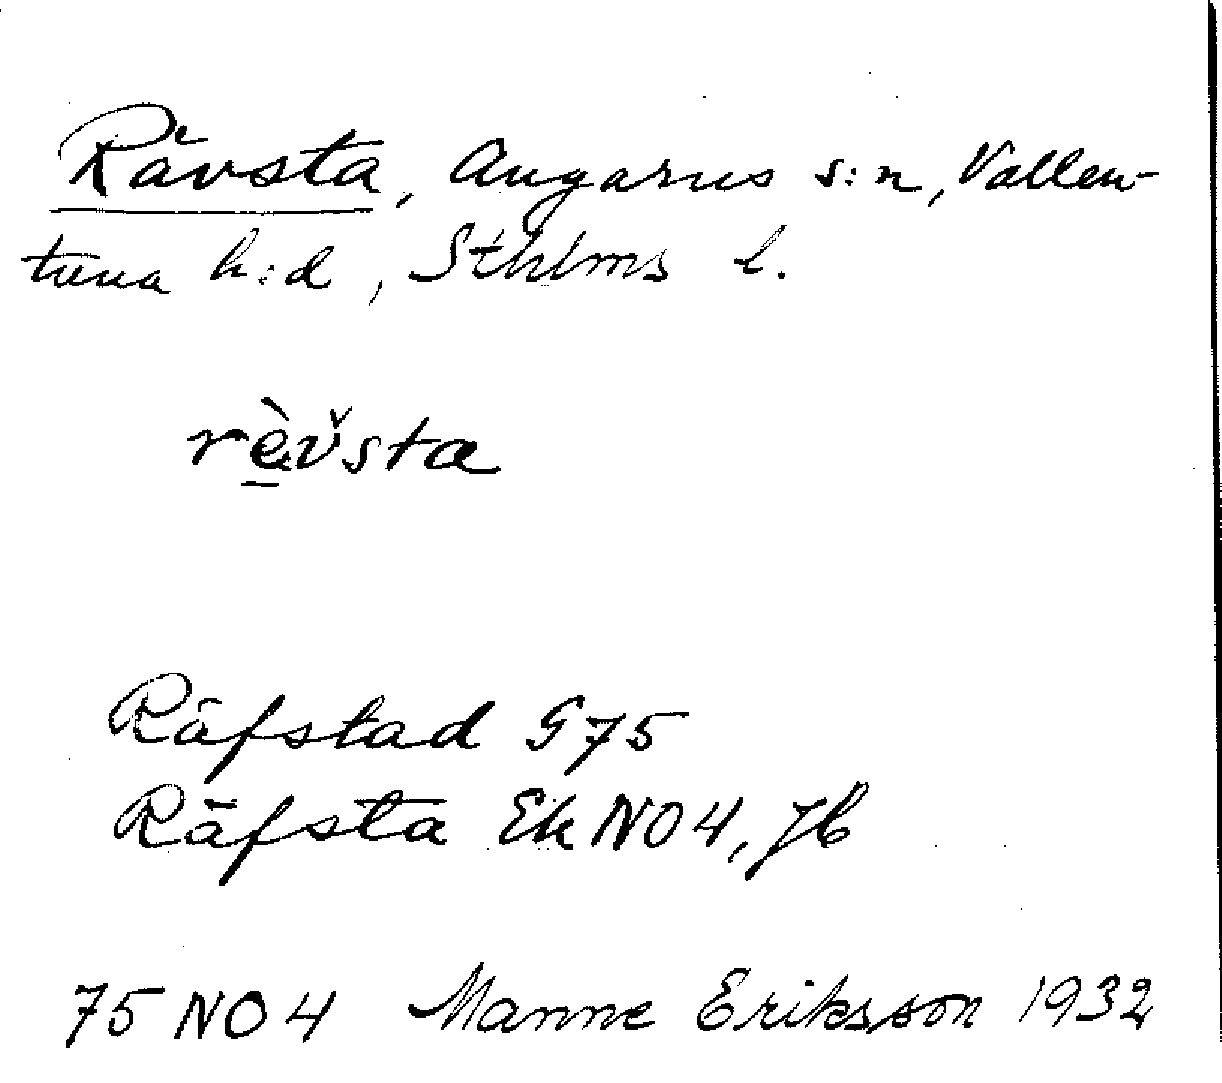 Rävsta, Angarns s:n, Vallen-
tuna h:d, Sthlms l.
rè̱v̌sta
Räfstad G75
Räfsta Ek NO4, Jb
75 NO4 Manne Eriksson 1932